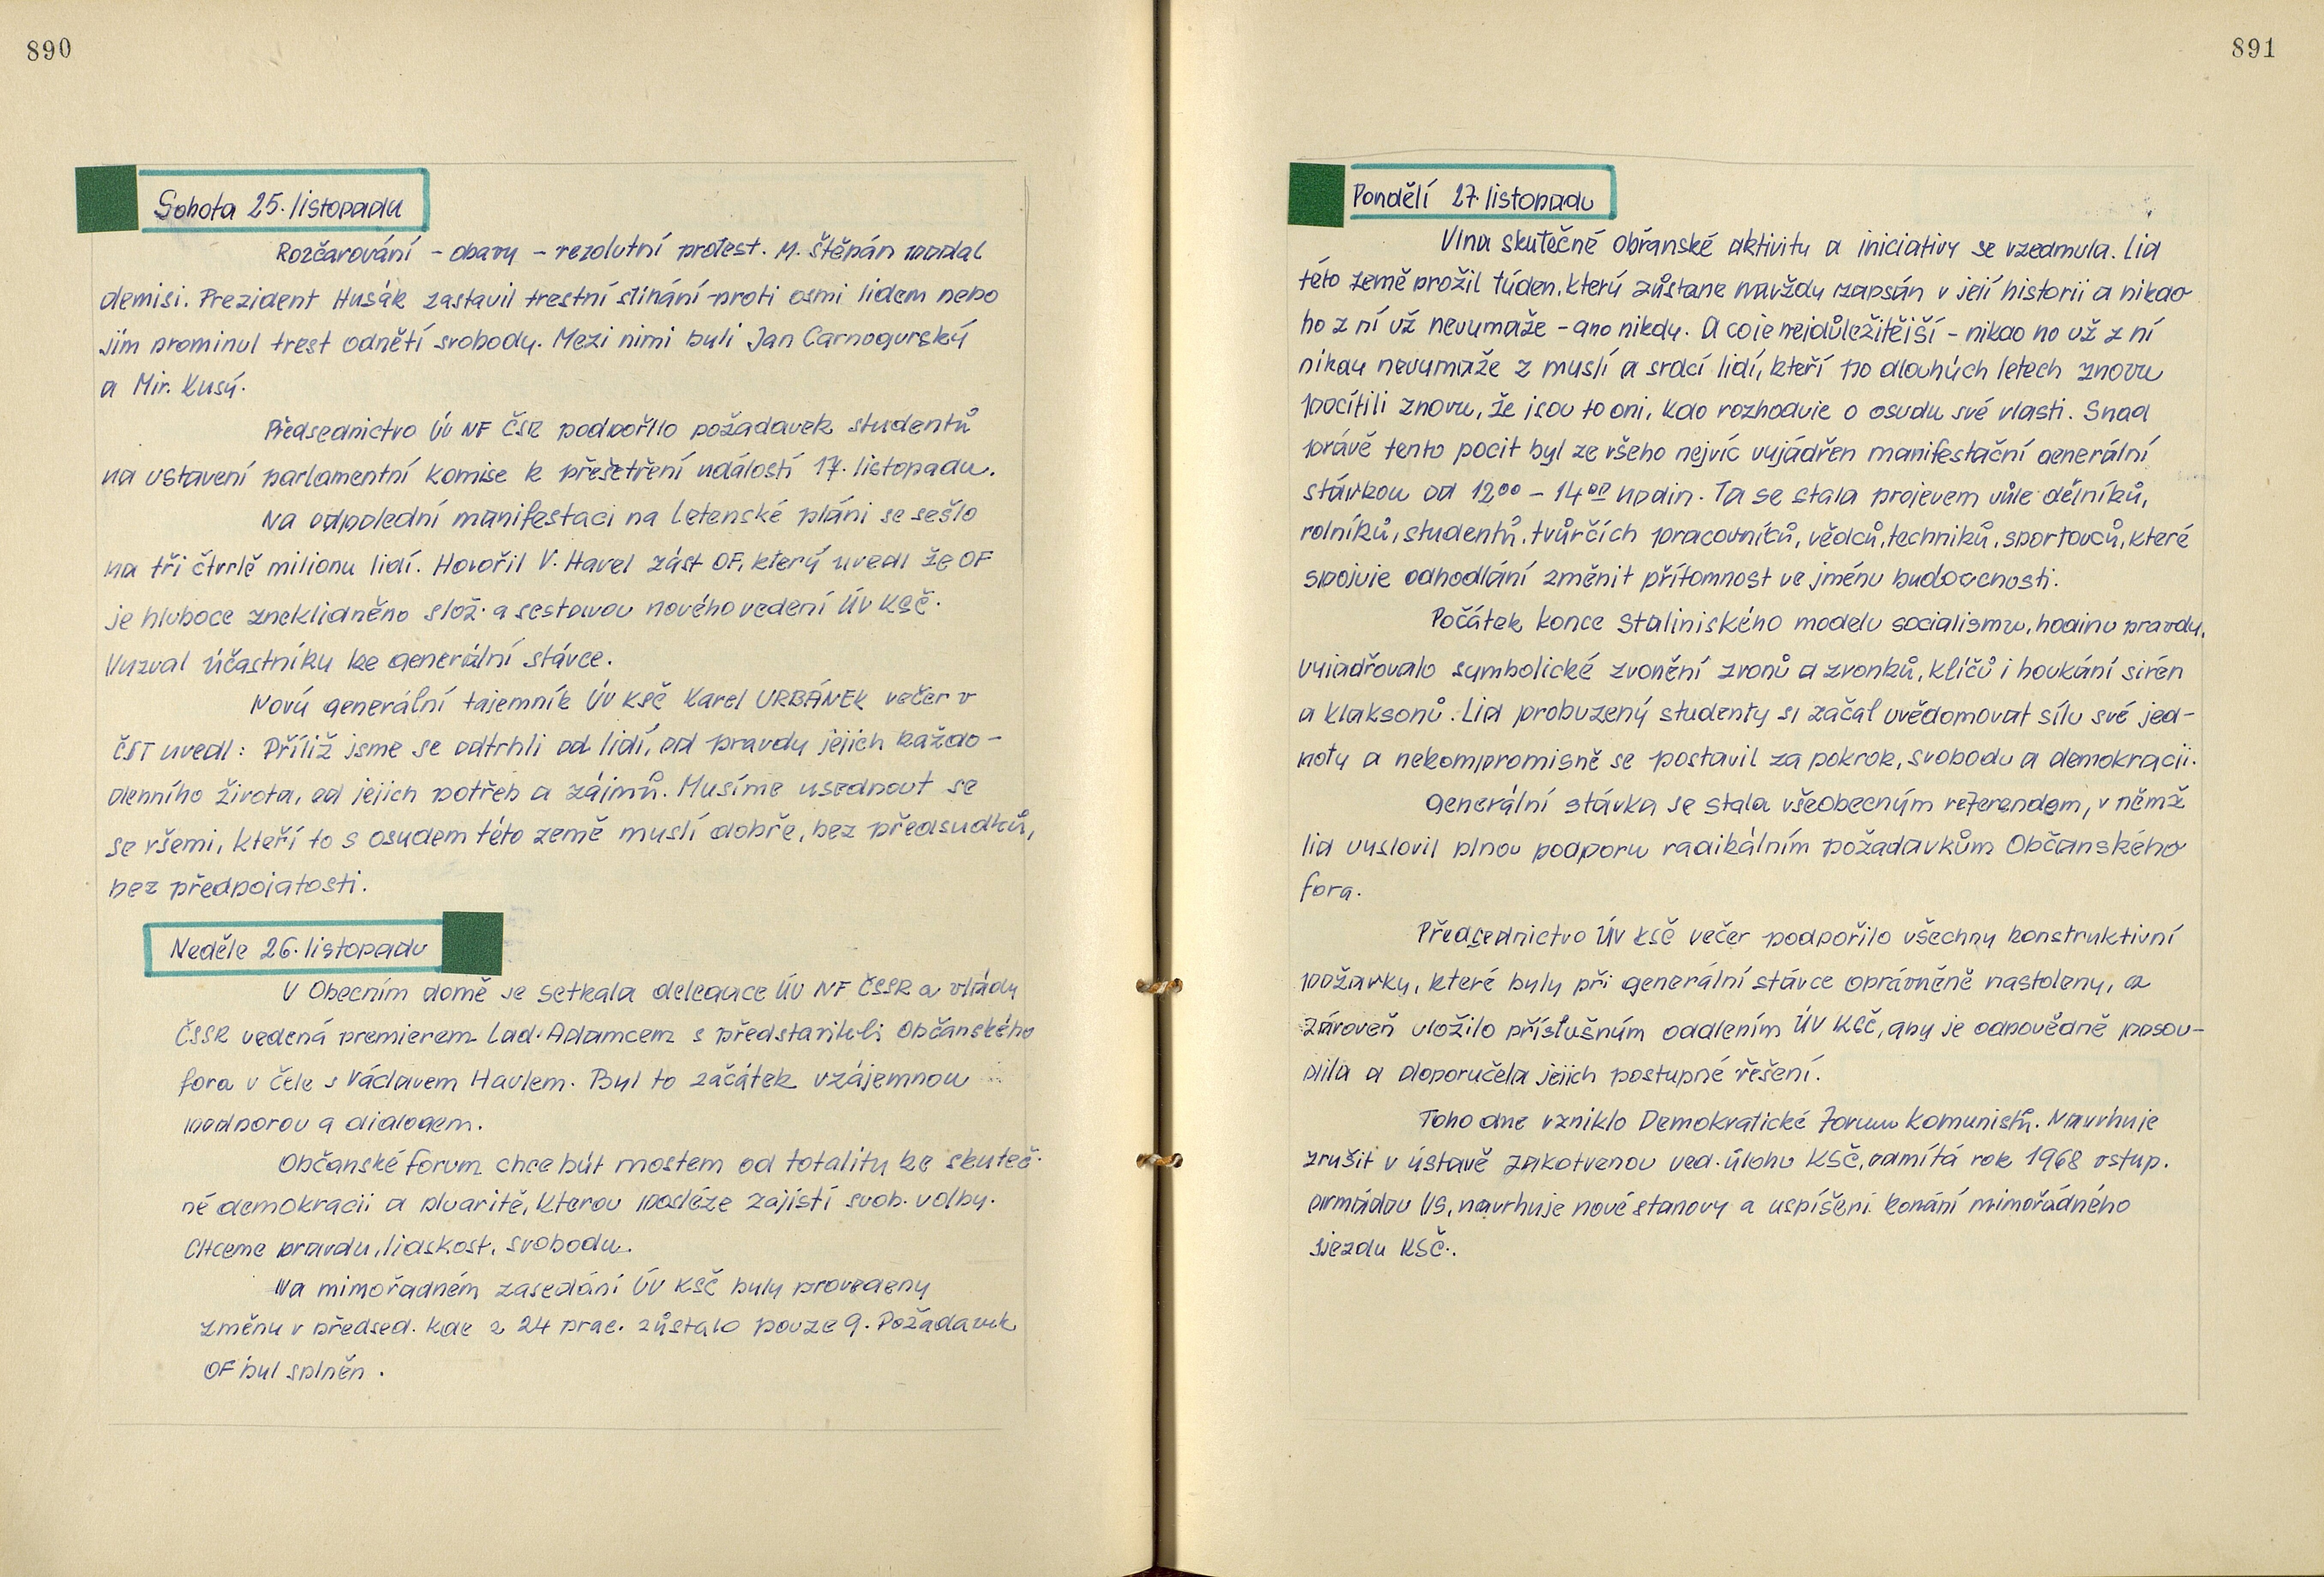 890
Sobota 25. listopadu
Rozčarování – obavy – rezolutní protest. M. Štěpán podal
demisi. Prezident Husák zastavil trestní stíhání proti osmi lidem nebo
jim prominul trest odnětí svobody. Mezi nimi byli Jan Čarnogurský
a Mir. Kusý.
Předsednictvo ÚV NF ČSR podpořilo požadavek studentů
na ustavení parlamentní komise k přešetření událostí 17. listopadu.
Na odpolední manifestaci na Letenské pláni se sešlo
na tři čtvrtě milionu lidí. Hovořil V. Havel zást OF, který uvedl že OF
je hluboce zneklidněno slož. a sestavou nového vedení ÚV KSČ.
Vyzval účastníky ke generální stávce.
Nový generální tajemník ÚV KSČ Karel URBÁNEK večer v
ČST uvedl: Příliž jsme se odtrhli od lidí, od pravdy jejich každo-
denního života, od jejich potřeb a zájmů. Musíme usednout se
se všemi, kteří to s osudem této země myslí dobře, bez předsudků,
bez předpojatosti.
Neděle 26. listopadu
V Obecním domě se setkala delegace ÚV NF ČSSR a vlády
ČSSR vedená premierem Lad. Adamcem s představiteli Občanského
fora v čele s Václavem Havlem. Byl to začátek vzájemnou
podporou a dialogem.
Občanské forum chce být mostem od totality ke skuteč-
né demokracii a pluaritě, kterou posléze zajistí svob. volby.
Chceme pravdu, lidskost, svobodu.
Na mimořadném zasedání ÚV KSČ byly provedeny
změny v předsed. kde z 24 prac. zůstalo pouze 9. Požadavek
OF byl splněn.
891
Pondělí 27. listopadu
Vlna skutečné obřanské aktivity a iniciativy se vzedmula. Lid
této země prožil týden, který zůstane navždy zapsán v její historii a nikdo
ho z ní už nevymaže – ano nikdy. A co je nejdůležitější – nikdo ho už z ní
nikdy nevymaže z myslí a srdcí lidí, kteří po dlouhých letech znovu
pocítili znovu, že jsou to oni, kdo rozhoduje o osudu své vlasti. Snad
právě tento pocit byl ze všeho nejvíc vyjádřen manifestační generální
stávkou od 12⁰⁰ – 14⁰⁰ hodin. Ta se stala projevem vůle dělníků,
rolníků, studentů, tvůrčích pracovníků, vědců, techniků, sportovců, které
spojuje odhodlání změnit přítomnost ve jménu budoucnosti.
Počátek konce staliniského modelu socialismu, hodinu pravdy,
vyjadřovalo symbolické zvonění zvonů a zvonků, klíčů i houkání sirén
a klaksonů. Lid probuzený studenty si začal uvědomovat sílu své jed-
noty a nekompromisně se postavil za pokrok, svobodu a demokracii.
Generální stávka se stala všeobecným referendem, v němž
lid vyslovil plnou podporu radikálním požadavkům Občanského
fora.
Předsednictvo ÚV KSČ večer podpořilo všechny konstruktivní
požavky, které byly při generální stávce oprávněně nastoleny, a
zároveň uložilo příslušným oddlením ÚV KSČ, aby je odpovědně posou-
dila a doporučela jejich postupné řešení.
Toho dne vzniklo Demokratické forum komunistů. Navrhuje
zrušit v ústavě zakotvenou ved. úlohu KSČ, odmítá rok 1968 vstup.
armádou VS, navrhuje nové stanovy a uspíšení konání mimořádného
sjezdu KSČ.